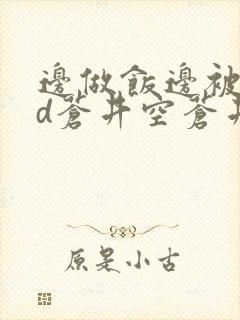 邊做飯邊被
d蒼井空蒼井
原是小古